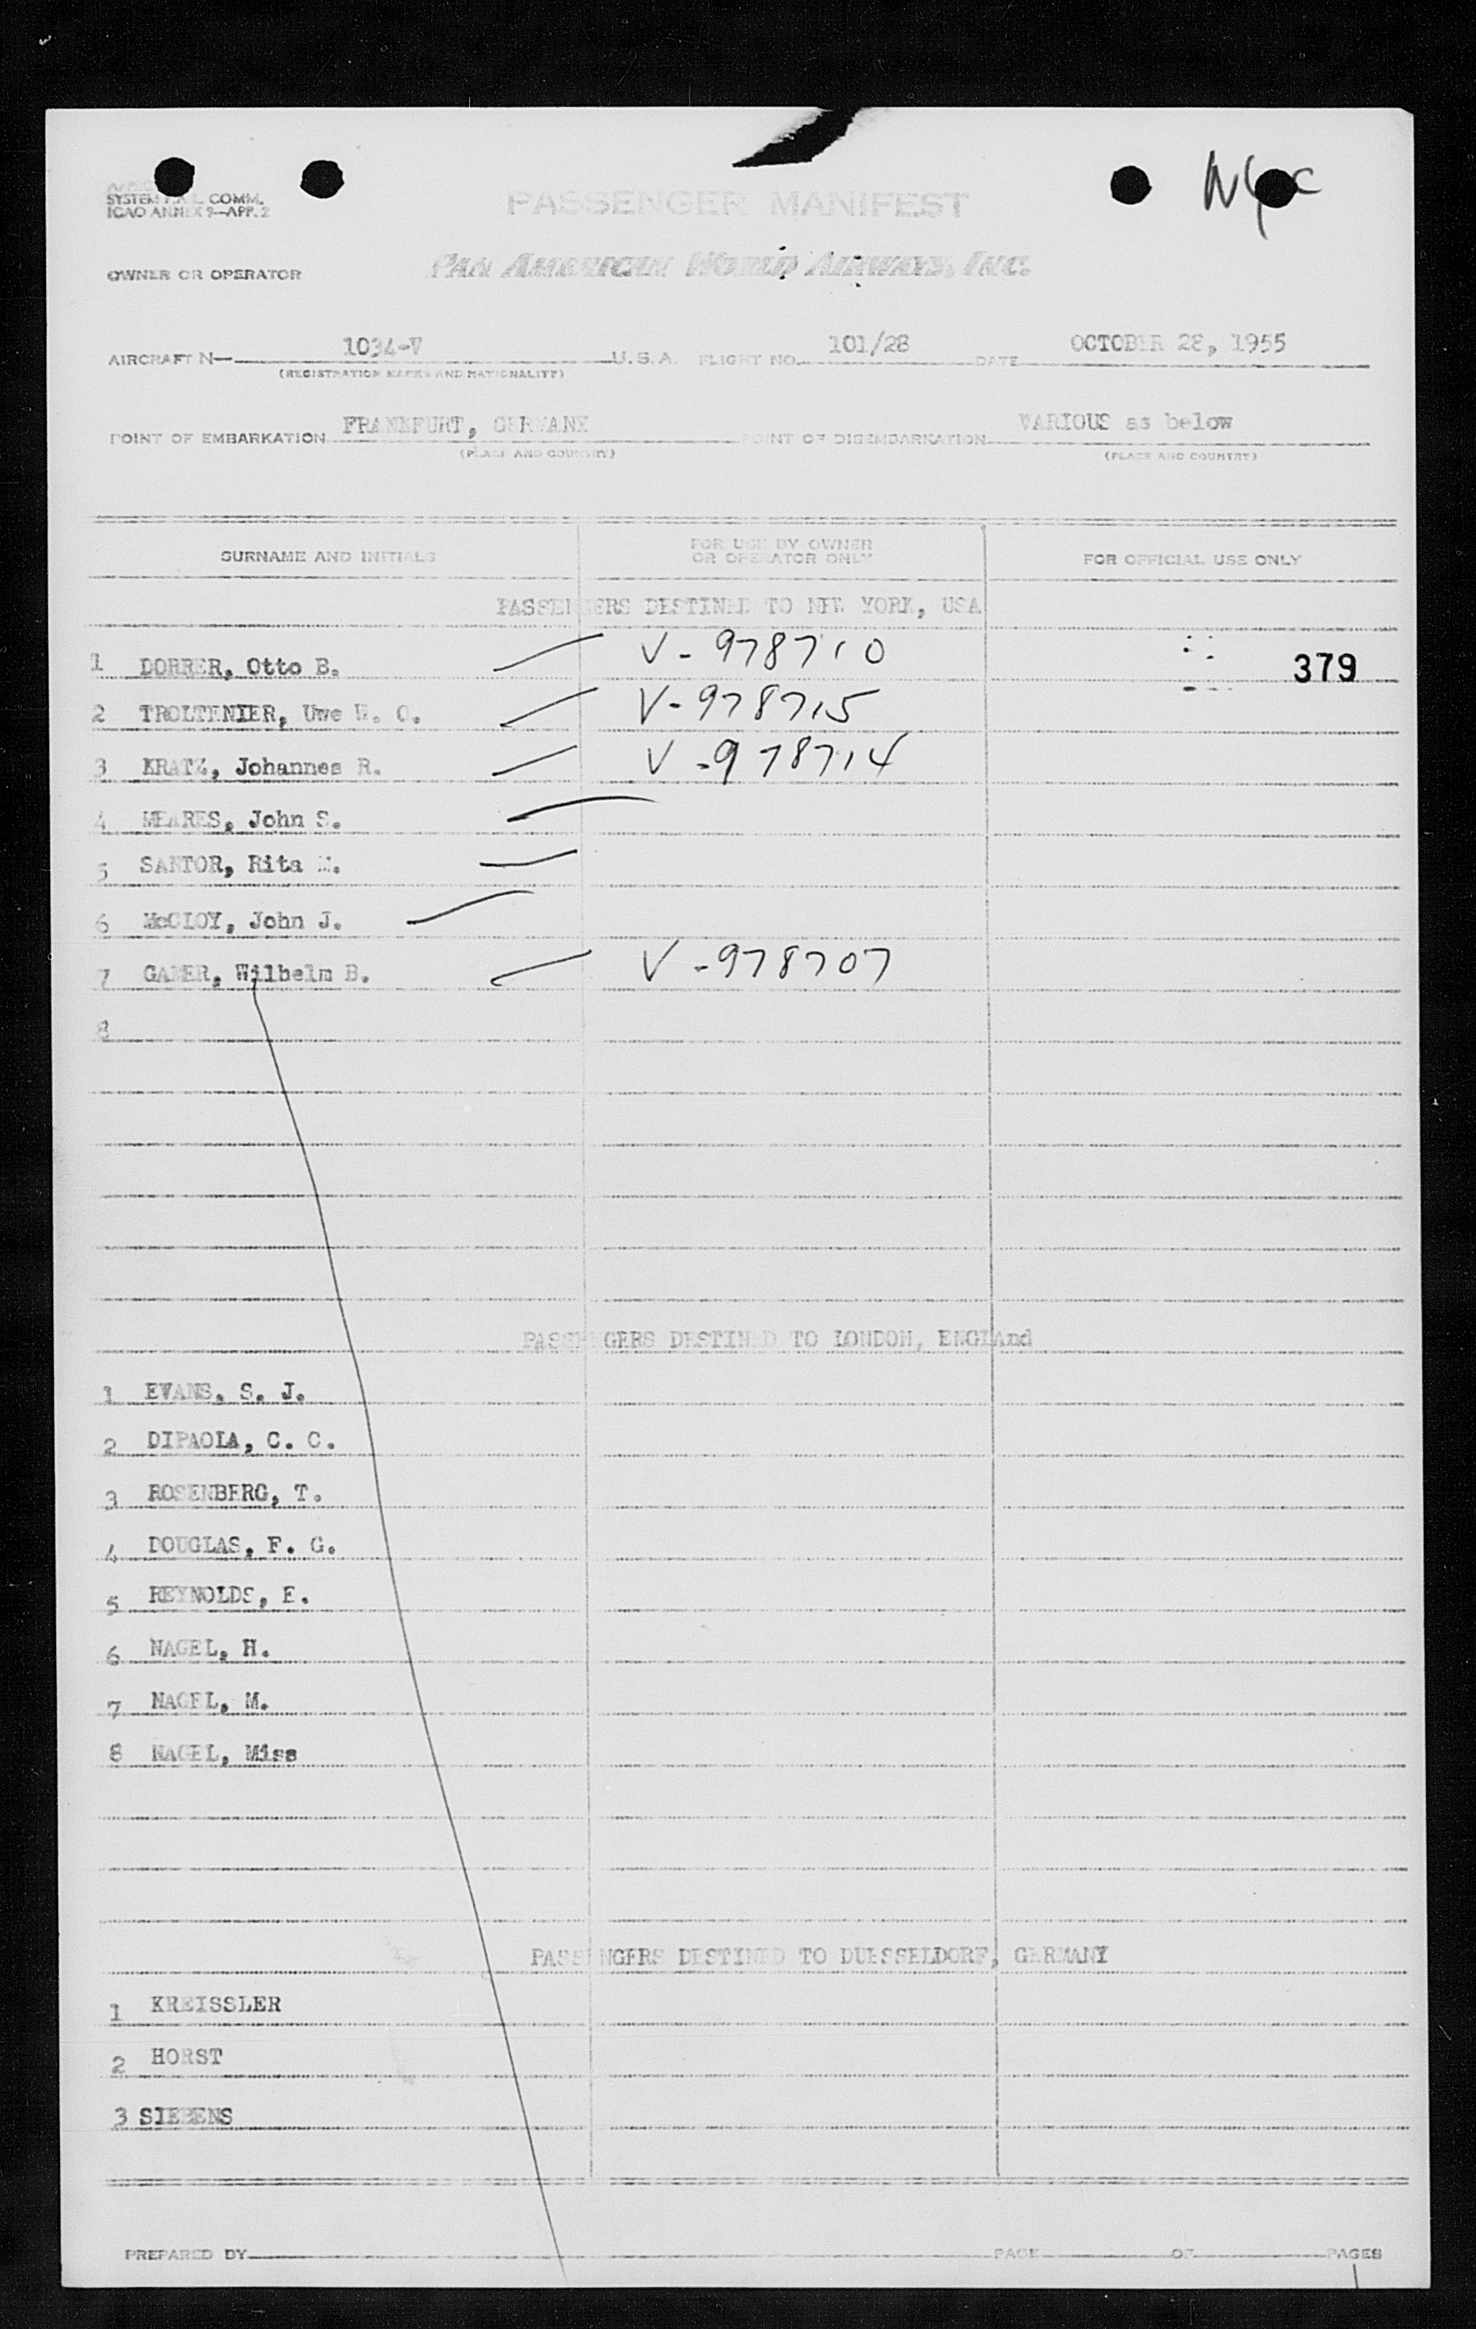 SYSTEM COMM.
ICAO ANNEX 9—APP. 2
NYC
PASSENGER MANIFEST
OWNER OR OPERATOR PAN AMERICAN WORLD AIRWAYS, INC.
AIRCRAFT N— 1034-V U.S.A. FLIGHT NO. 101/28 DATE OCTOBER 28, 1955
(REGISTRATION MARKS AND NATIONALITY)
POINT OF EMBARKATION FRANKFURT, GERMANY POINT OF DISEMBARKATION VARIOUS as below
(PLACE AND COUNTRY) (PLACE AND COUNTRY)
SURNAME AND INITIALS FOR USE BY OWNER OR OPERATOR ONLY FOR OFFICIAL USE ONLY
PASSENGERS DESTINED TO NEW YORK, USA
1 DORRER, Otto B. V-978710 379
2 TROLTENIER, Uwe W. O. V-978715
3 KRATZ, Johannes R. V-978714
4 MEARES, John S.
5 SANTOR, Rita M.
6 McCLOY, John J.
7 GABER, Wilhelm B. V-978707
8
PASSENGERS DESTINED TO LONDON, ENGLAnd
1 EVANS, S. J.
2 DIPAOLA, C. C.
3 ROSENBERG, T.
4 DOUGLAS, F. G.
5 REYNOLDS, E.
6 NAGEL, H.
7 NAGEL, M.
8 NAGEL, Miss
PASSENGERS DESTINED TO DUESSELDORF, GERMANY
1 KREISSLER
2 HORST
3 SIEBENS
PREPARED BY PAGE OF PAGES